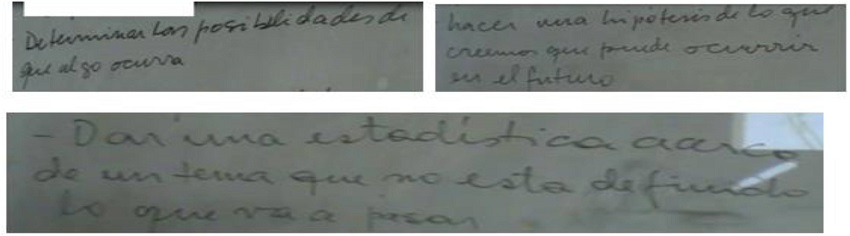 Determinar las posibilidades de
que algo ocurra
hacer una hipótesis de lo que
creemos que puede ocurrir
en el futuro
- Dar una estadística acerca
de un tema que no esta definido
lo que va a pasar